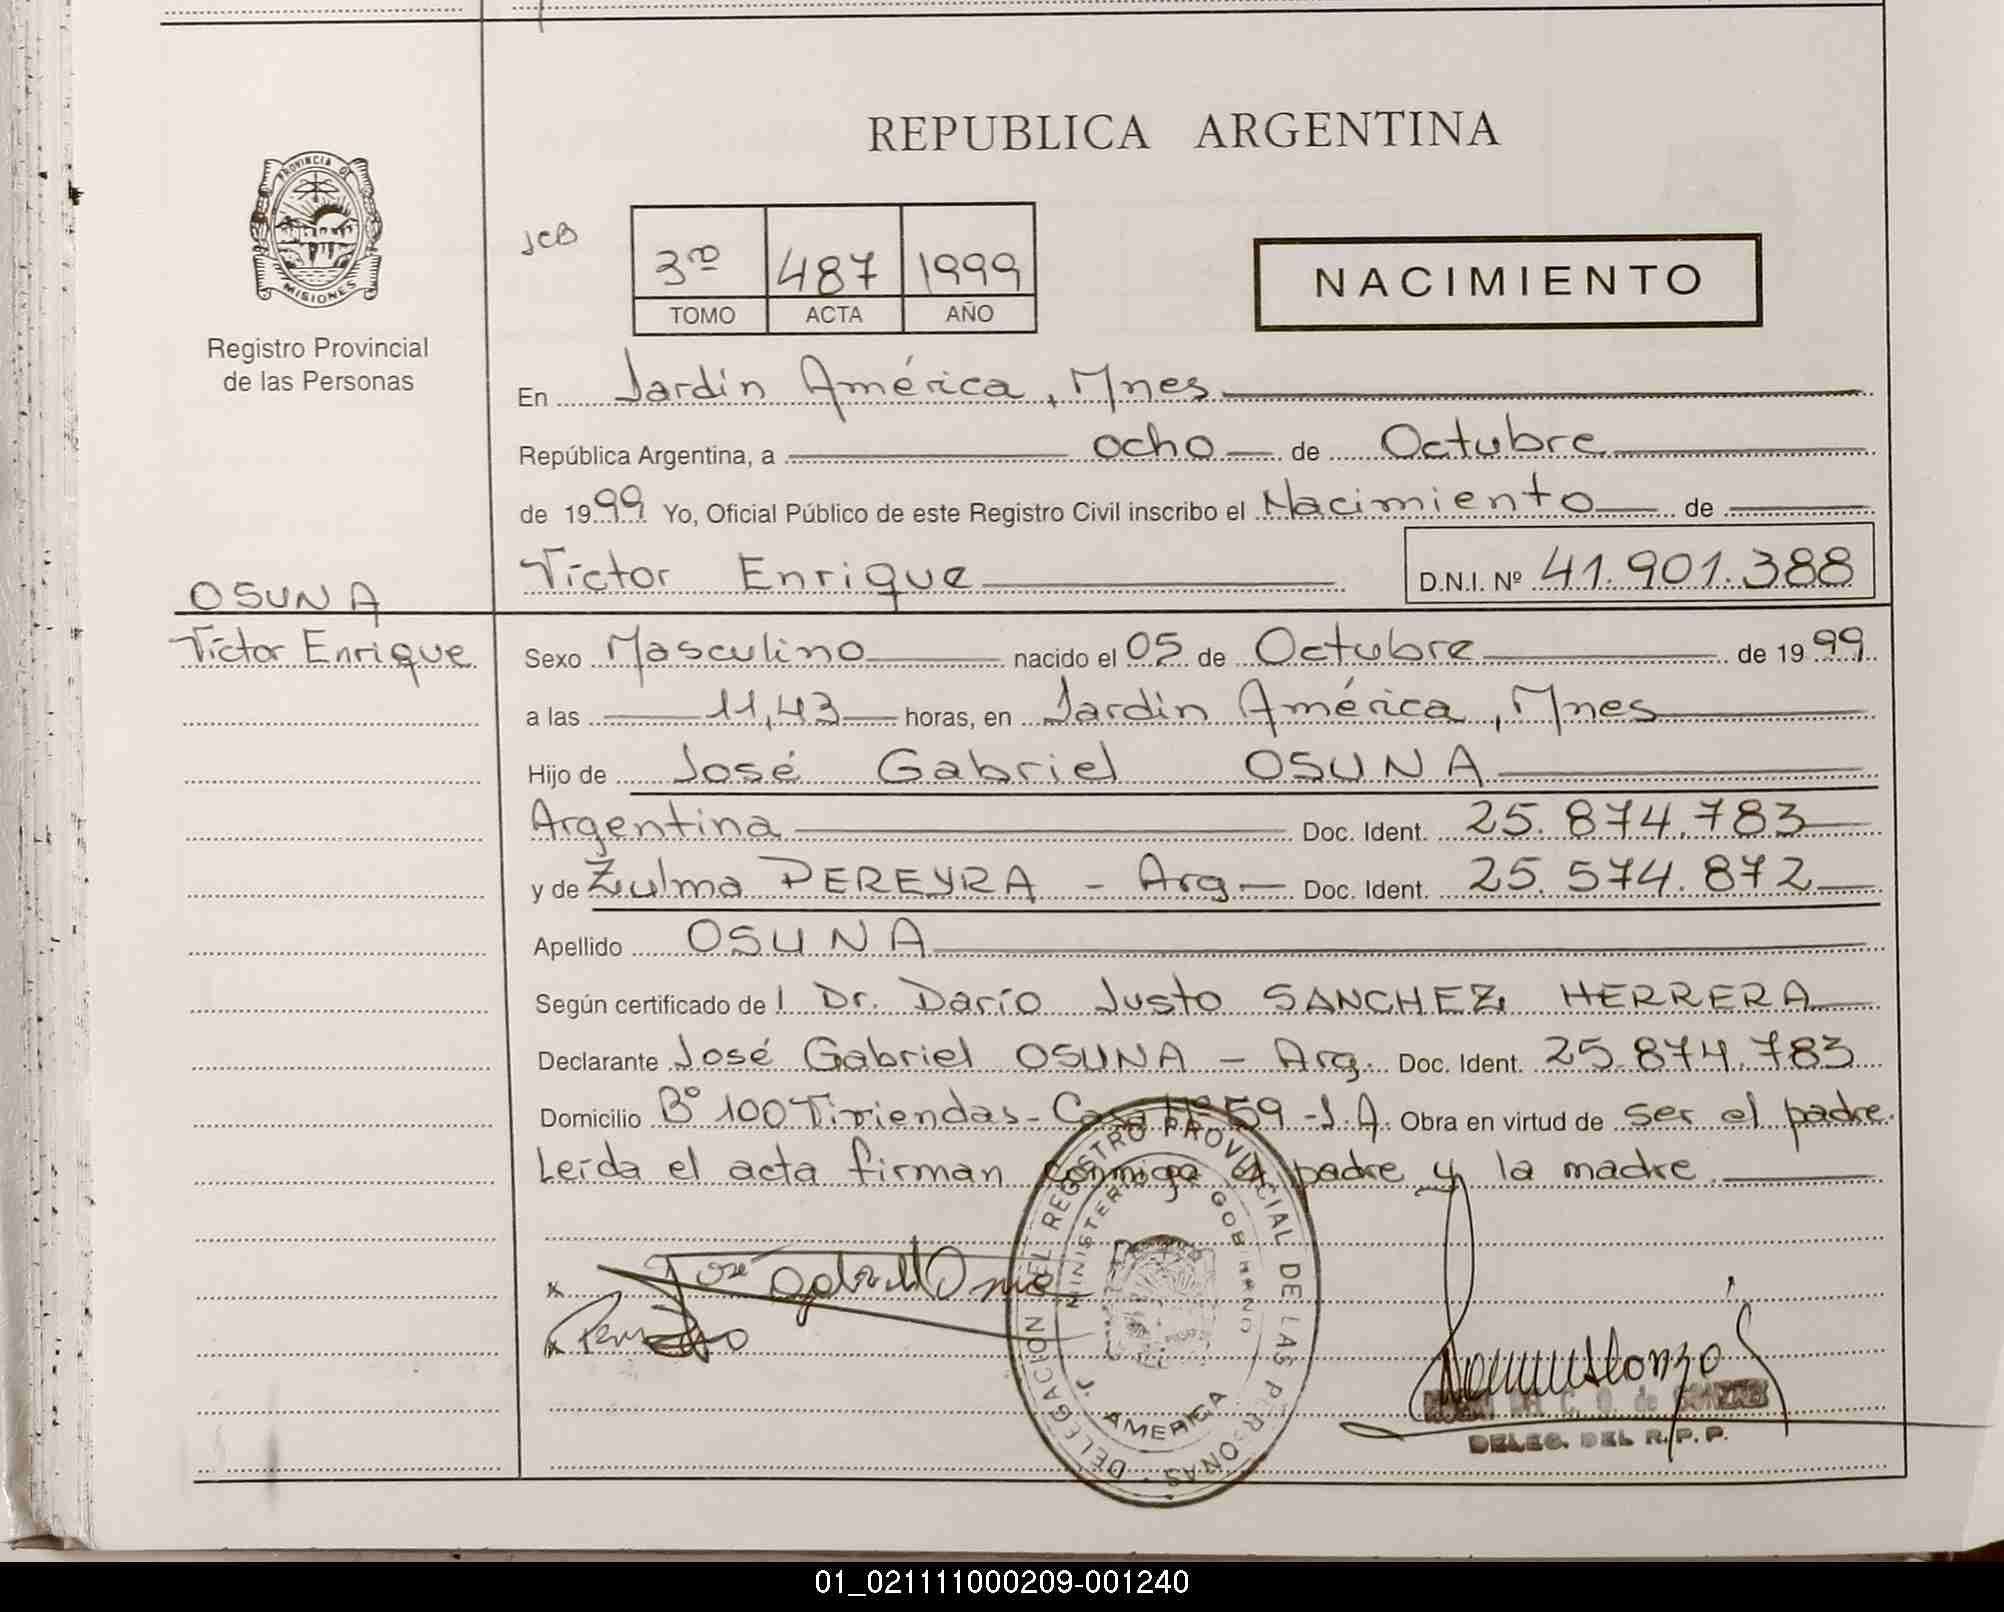 REPUBLICA ARGENTINA
PROVINCIA DE
MISIONES
Registro Provincial
de las Personas
JCB
3ro 487 1999
TOMO ACTA AÑO
NACIMIENTO
En Jardín América, Mnes
República Argentina, a ocho de Octubre
de 1999 Yo, Oficial Público de este Registro Civil inscribo el Nacimiento de
Víctor Enrique D.N.I. Nº 41.901.388
OSUNA
Víctor Enrique
Sexo Masculino nacido el 05 de Octubre de 1999
a las 11,43 horas, en Jardín América, Mnes
Hijo de José Gabriel OSUNA
Argentina Doc. Ident. 25.874.783
y de Zulma PEREYRA - Arg Doc. Ident. 25.574.872
Apellido OSUNA
Según certificado de l Dr. Darío Justo SANCHEZ HERRERA
Declarante José Gabriel OSUNA - Arg. Doc. Ident. 25.874.783
Domicilio Bº 100 Viviendas - Casa Nº 59 - J.A. Obra en virtud de ser el padre.
Leída el acta firman conmigo el padre y la madre
DELEGACION DEL REGISTRO PROVINCIAL DE LAS PERSONAS
MINISTERIO DE GOBIERNO
J. AMERICA
x José Gabriel Osuna
x
DELEG. DEL R.P.P.
01_021111000209-001240